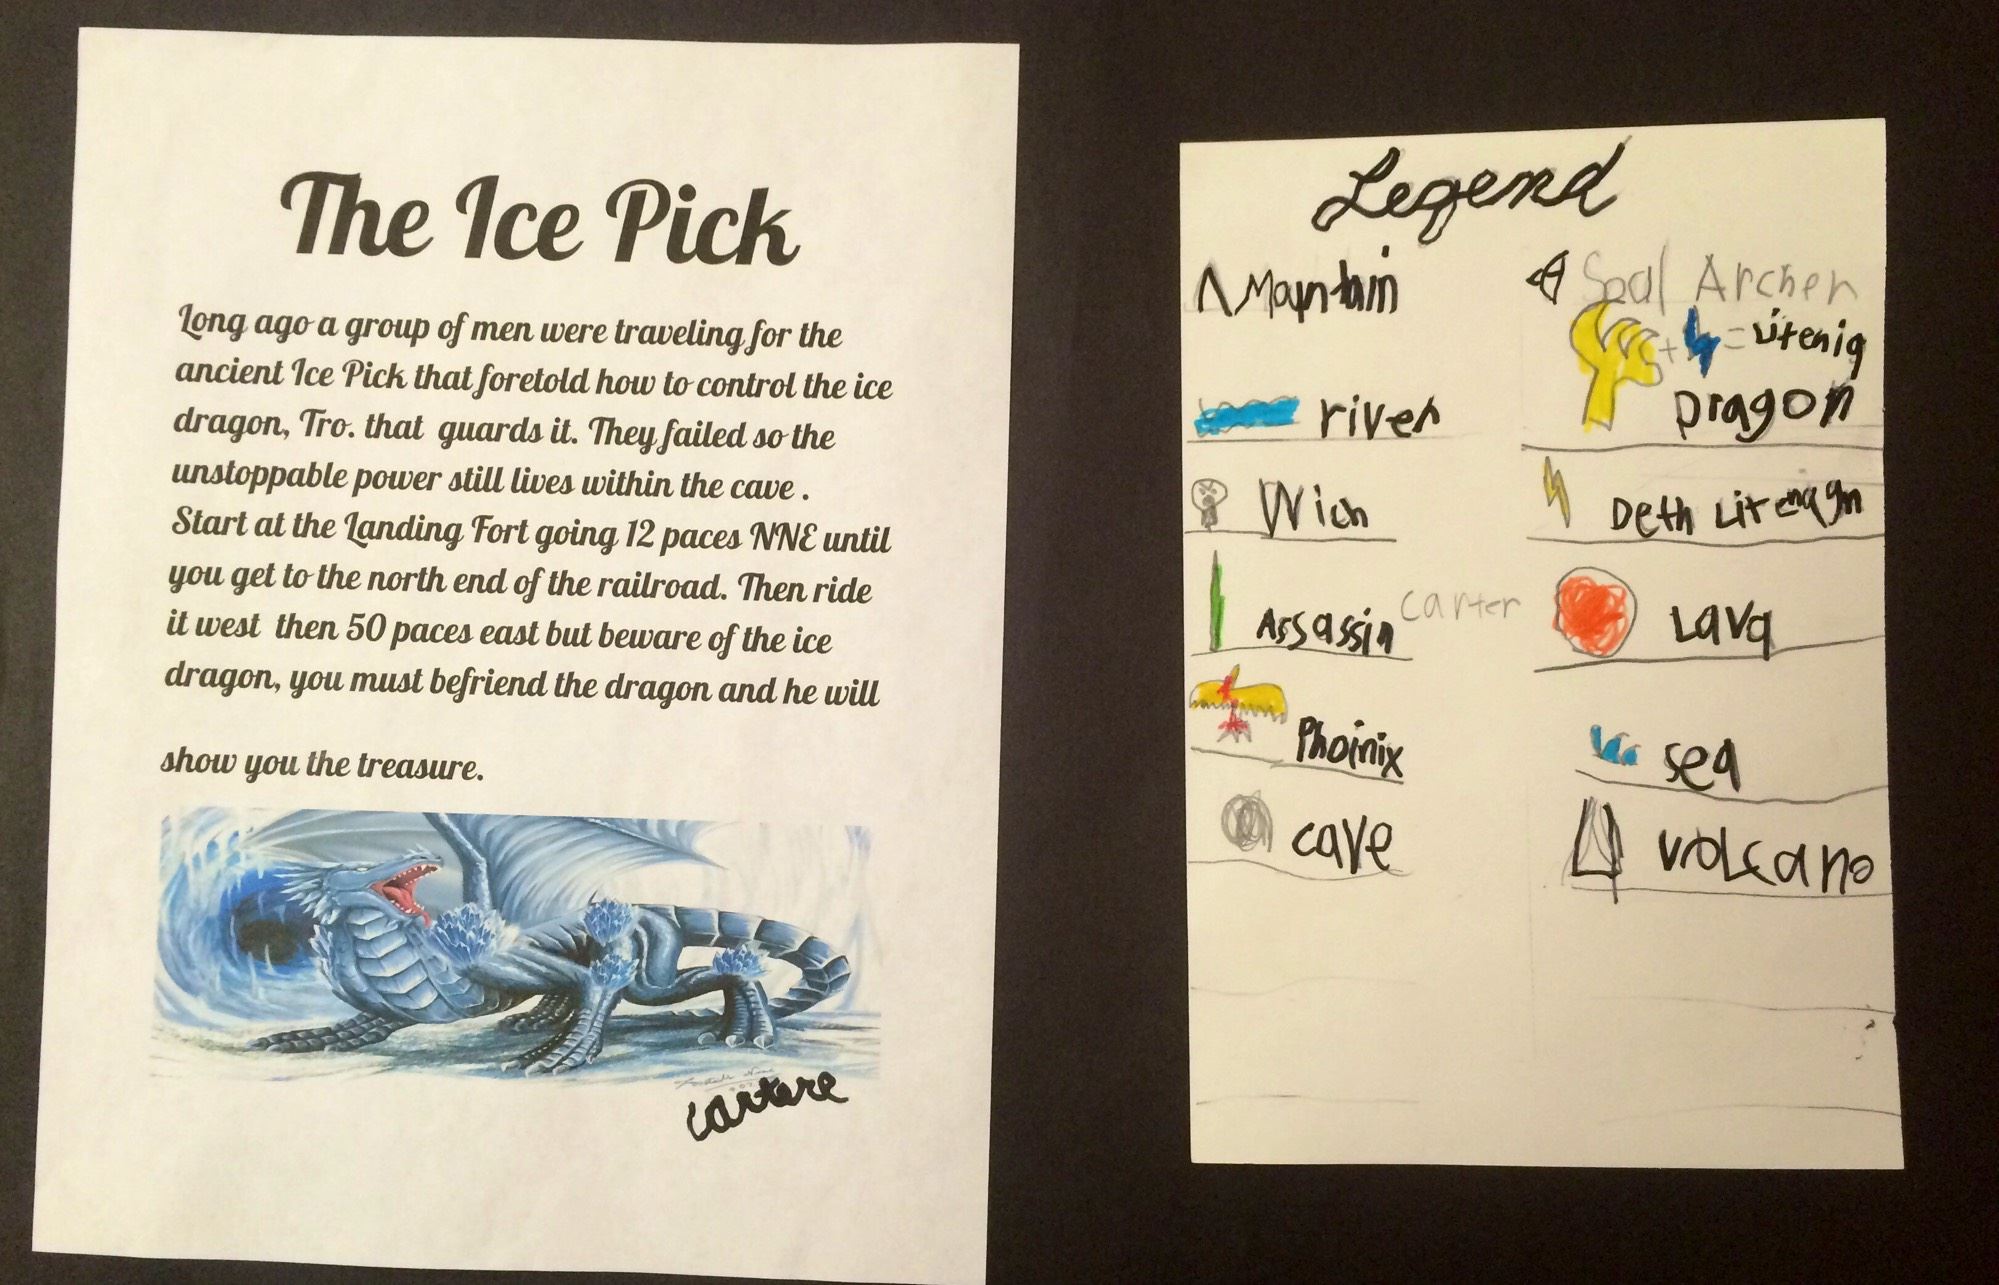 The Ice Pick
Long ago a group of men were traveling for the
ancient Ice Pick that foretold how to control the ice
dragon, Tro. that guards it. They failed so the
unstoppable power still lives within the cave .
Start at the Landing Fort going 12 paces NNE until
you get to the north end of the railroad. Then ride
it west then 50 paces east but beware of the ice
dragon, you must befriend the dragon and he will
show you the treasure.
cartere
Legend
Mountain
river
Wich
Assassin carter
Phoinix
cave
Soal Archer
+ = Litenig
Dragon
Deth Litenagn
Lava
sea
volcano